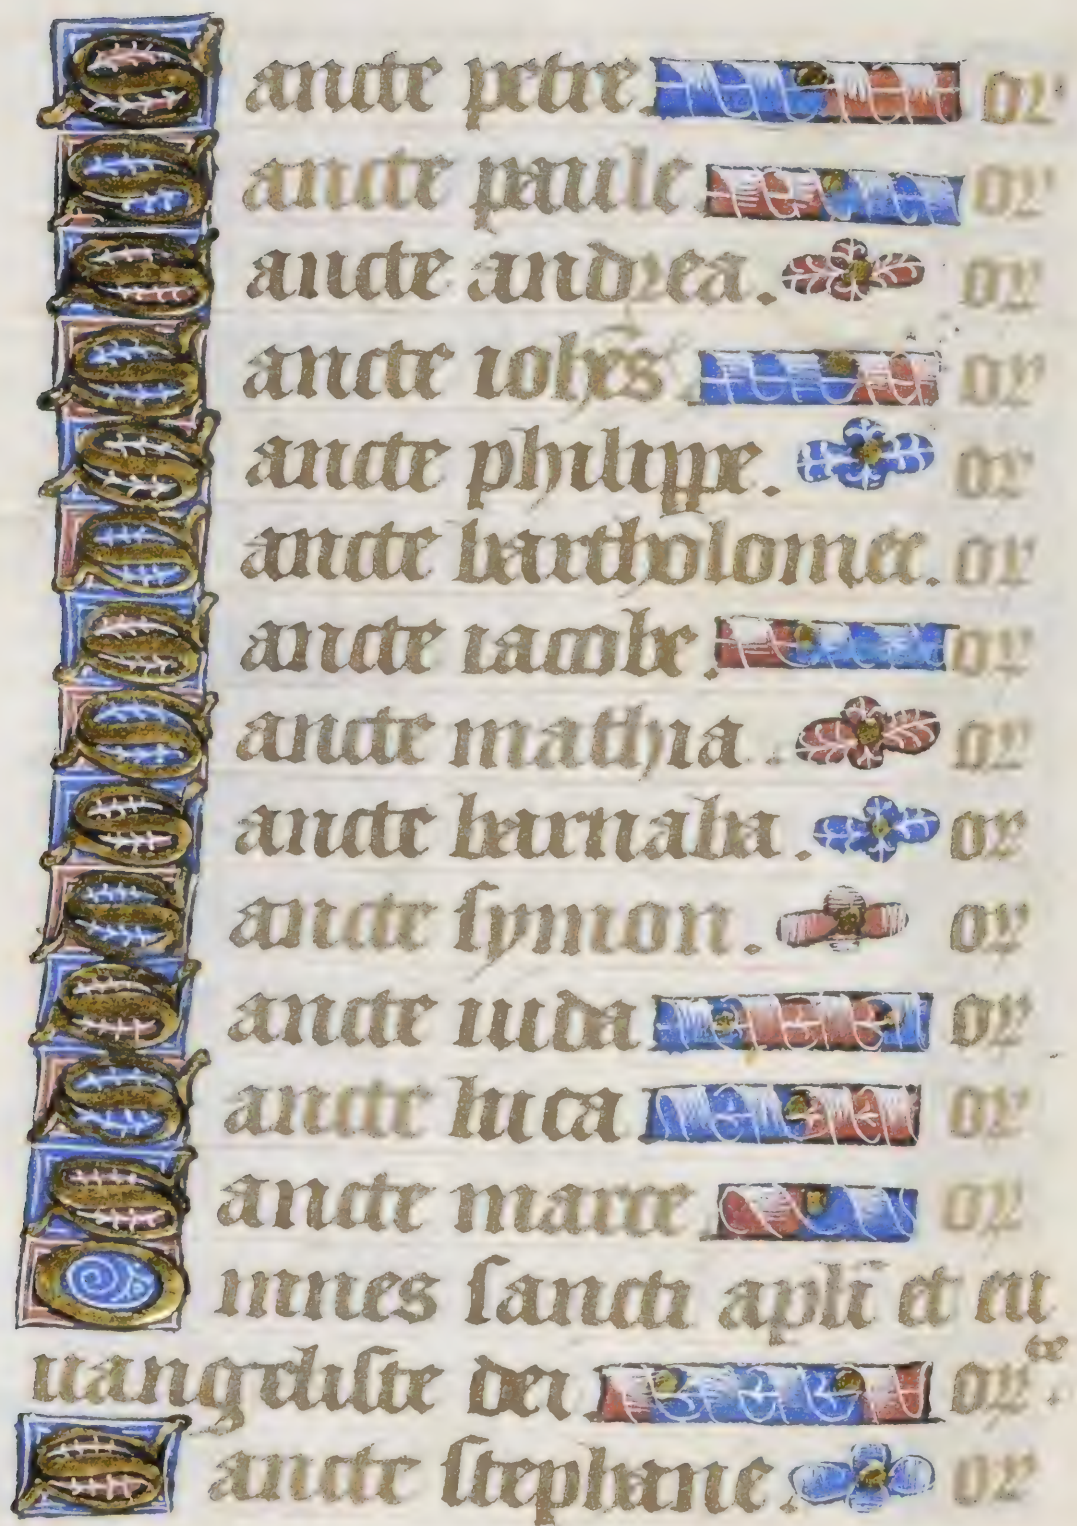 Sancte petre or
Sancte paule or
Sancte andrea. or
Sancte ioh̄es or
Sancte philippe. or
Sancte bartholomee. or
Sancte iacobe. or
Sancte mathia. or
Sancte barnaba. or
Sancte symon. or
Sancte iuda or
Sancte luca or
Sancte marce or
Omnes sancti apl̄i et eu
uangeliste dei or te.
Sancte stephane. or